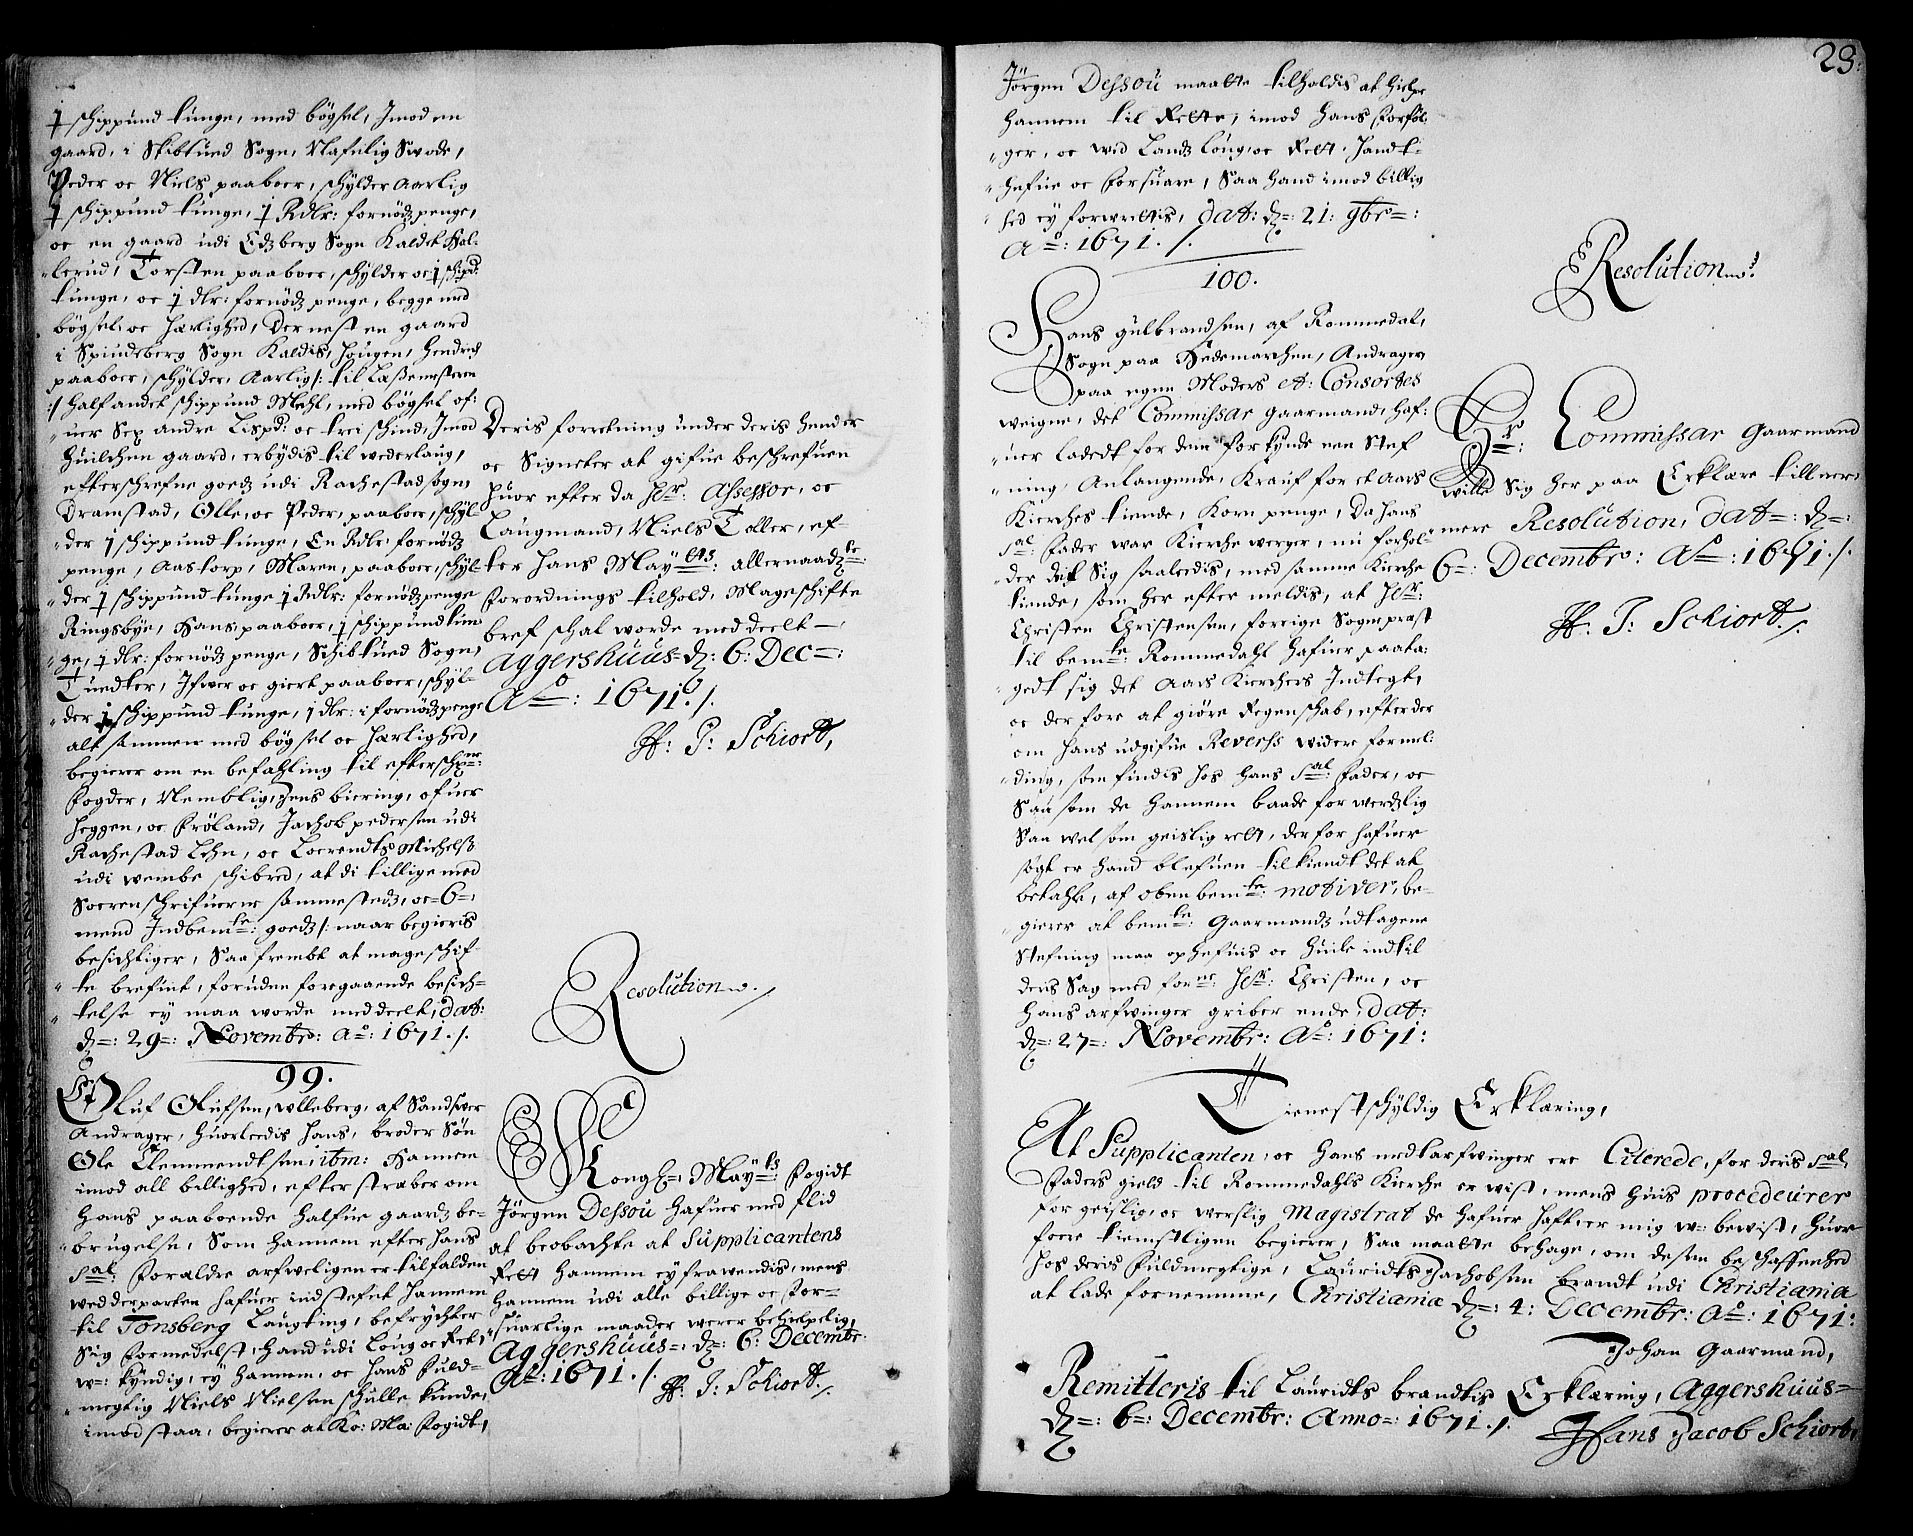 1 schippund tunge, med bøgsel, Imod en
gaard, i Skibtued Sogn, Nafnlig Swode,
Peder oc Niels paaboer, schylder aarlig
1 schippund tunge, 1 Rdlr: fornødz penge,
oc en gaard udi Edzberg Sogn Kaldet Hal-
lerud, Torsten paaboer, schylder oc 1 schipd:
tunge, oc 1 dlr: fornødz penge, begge med
bøgsel oc Herlighed, Der nest en gaard
i Spindeberg Sogn Kaldis, Hougen, Hendrich
paaboer, schylder, Aarlig /: til Læssemesteren
:/ halfandet schippund Mehl, med bøgsel of-
uer Sex andre Lispd: oc trei schind, Imod
huilchen gaard, erbydis til wederlaug,
efterschrefne goedz udi Rachestad sogn,
Dramstad, Olle, oc Peder, paaboer, schyl-
der 1 schippund tunge, En Rdlr: fornødz
penge, Aastorp, Maren, paaboer, schyl-
der 1 schippund tunge 1 Rdlr: fornødz penge
Ringsbye, Hans paaboer, 1 schippund tun-
ge, 1 dlr: fornødz penge, Schibtued Sogn,
Tuedter, Ifwer oc giert paaboer, schyl-
der 1 schippund tunge, 1 dlr: i fornødz penge
alt sammen med bøgsel oc Herlighed,
begierer om en befahling til efterschne:
Fogder, Nemblig, Jens biering, ofuer
Heggen, oc Frøland, Jachob pedersen udi
Rachestad Lehn, oc Loerendts Michelss
udi wembe schibred, at di tillige med
Soerenschrifuerne sammestedz, oc 6
mend Indbemte: goedz /: naar begieris
besichtiger, Saa frembt at mageschif-
te brefuit, foruden foregaaende besich-
telse ey maa worde meddeelt, dat:
dz: 29: Novembr: Ao: 1671 ./.
99.
Oluf Olufsen, wlleberg, af Sandswer
Andrager, huorledis hans, broder Søn
Ole Clemmendtsen itm: Hannem
imod all billighed, efterstraber om
hans paaboende halfue gaardz be-
brugelse, Som hannem efter hans
Sal: Foraldre arfweligen er tilfalden
wedderparten hafuer indstefnt hannem
til Tonsberg Laugting, befrychter
Sig formedelst hand udi Loug oc Ret,
w: kyndig, ey hannem, oc hans fuld-
megtig Niels Nielsen schulle kunde,
imod staa, begierer at Ko: Ma: Fogidt,
Deris forretning under deris hender
oc Signeter at gifue beschrefuen
huor efter da Hr: Assessor, oc
Laugmand, Niels Toller, ef-
ter Hans Mayets: allernaadste:
forordnings tilhold, Mageschifte
bref schal worde meddeelt —
Aggershuus dz: 6: Dec:
Ao: 1671 ./.
H: J: Schiort,
Resolution. /
Kongl: Mayts: Fogidt
Jørgen Dessou hafuer med flid
at beobachte at Supplicantens
Rett hannem ey frawendis, mens
hannem udi alle billige oc for-
suarlige maader werer behielpelig,
Aggershuus dz: 6: Decembr:
Ao: 1671 ./.
H: J: Schiort ./.
23:
Jørgen Dessou maatte tilholdis at hielpe
hannem til Rette, imod hans forføl-
ger, oc wid Landz Loug, oc Rett, handt-
hefue oc forsuare, Saa hand imod billig
hed ey forurettis, dat: dz: 21: 9br:
Ao: 1671 ./.
100.
Hans gulbrandsen, af Rommedal,
Sogn paa Hedemarchen, Andrager
paa egne Moders et: Consortes
weigne, det Commissar gaarmand, haf-
uer ladedt for dem forkynde een Stef
ning, Anlangende, Krauf for et Aars
Kierches tiende, Korn penge, Da hans
Sal: Fader war Kierche werger, nu forhol-
der det Sig saaledis, med samme Kierche
tiende, som her efter meldis, at Hr:
Christen Christensen, forrige Sogneprest
til bemte: Rommedahl hafuer paata-
gedt sig det Aars Kierches Indtegt,
oc der fore at giøre Regenschab, efter der
om hans udgifne Reverss widere formel-
ding, som findis hos hans Sal: Fader, oc
Saa som de hannem baade for werdzlig
Saa wel som geistlig rett, der for hafuer
søgt er hand blefuen tilkiendt det at
betahle, af obenbemte: motiver, be-
gierer at bemte: Gaarmandz udtagene
Stefning maa ophefuis oc huile indtil
deris Sag med forne: Hr: Christen, oc
hans arfwinger griber ende, dat:
dz: 27: Novembr: Ao: 1671:
Resolution.
Hr: Commissar Gaarmand
wille Sig her paa Erklære till ner-
mere Resolution, dat: dz:
6: Decembr: Ao: 1671 ./.
H: J: Schiort ./.
Tienestschyldig Erklæring,
At Supplicanten, oc hans medtarfwinger ere Citerede, for deris Sal:
Faders gield til Rommedahls Kierche er wist, mens huis procedeurer
for geistlig, oc werslig Magistrat de hafuer haft er mig w: bewist, huor
fore tienstligen begierer, Saa maatte behage, om dessen beschaffenhed
hos deris fuldmegtige, Lauridts Jachobsen brandt udi Christiania
at lade fornemme, Christiania dz: 4: Decembr: Ao: 1671:
Johan Gaarmand,
Remitteris til Lauridts brandtis Erklæring, Aggershuus
dz: 6: Decembr: Anno: 1671 ./.
Hans Jacob Schiort,